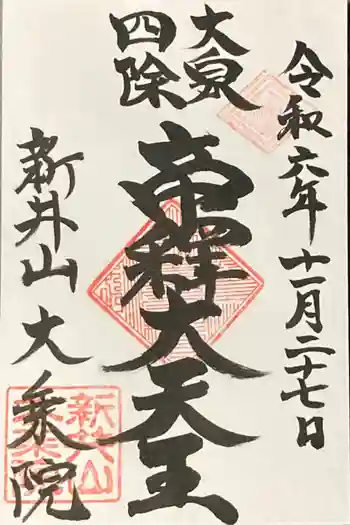 令和六年十一月二十七日
大泉
四除
帝釋大天王
新井山大乗院